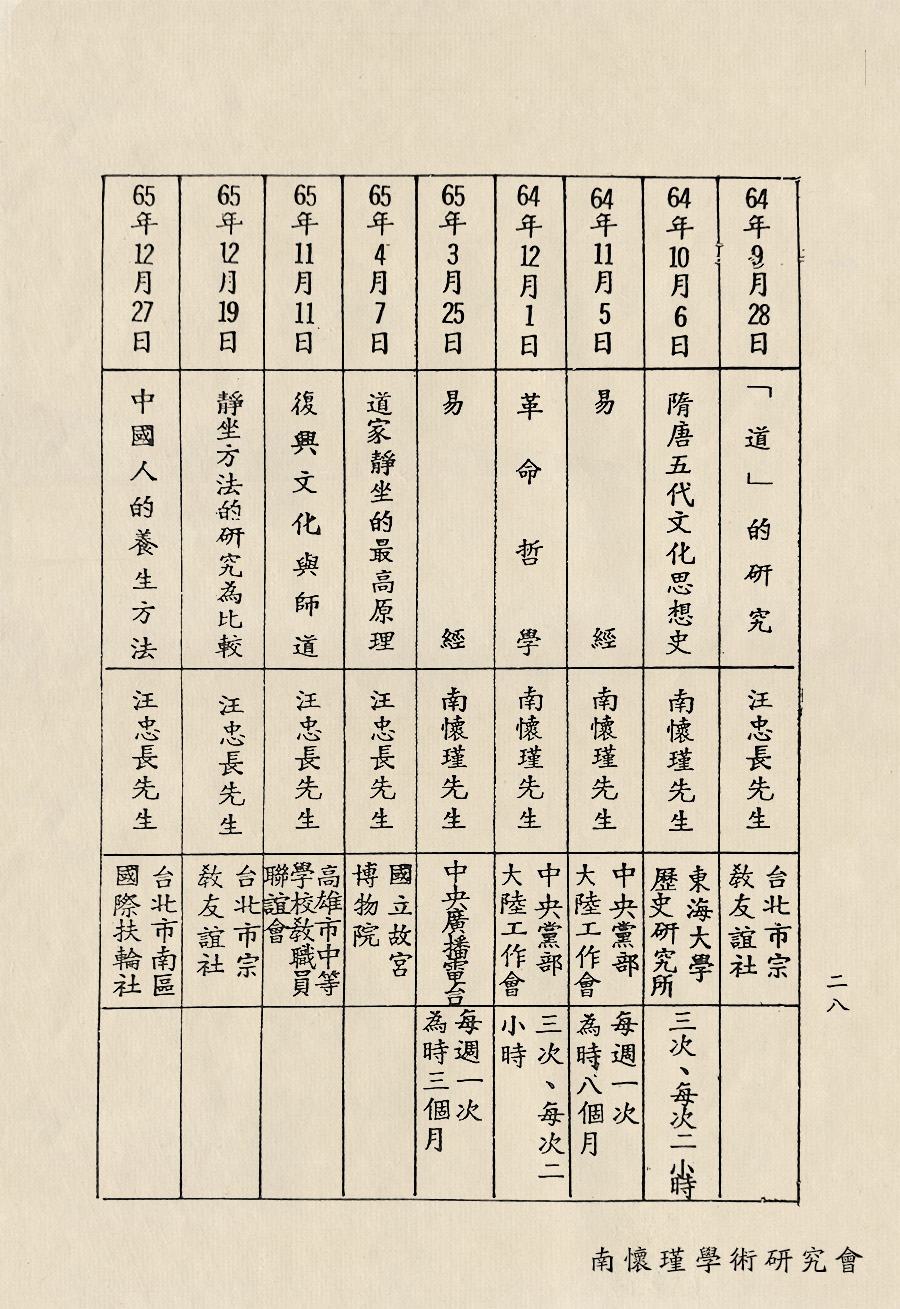 64年9月28日
「道」的研究
汪忠長先生
台北市宗
教友誼社
64年10月6日
隋唐五代文化思想史
南懷瑾先生
東海大學
歷史研究所
三次、每次二小時
64年11月5日
易經
南懷瑾先生
中央黨部
大陸工作會
每週一次
為時八個月
64年12月1日
革命哲學
南懷瑾先生
中央黨部
大陸工作會
三次、每次二
小時
65年3月25日
易經
南懷瑾先生
中央廣播電台
每週一次
為時三個月
65年4月7日
道家靜坐的最高原理
汪忠長先生
國立故宮
博物院
65年11月11日
復興文化與師道
汪忠長先生
高雄市中等
學校教職員
聯誼會
65年12月19日
靜坐方法的研究為比較
汪忠長先生
台北市宗
教友誼社
65年12月27日
中國人的養生方法
汪忠長先生
台北市南區
國際扶輪社
二八
南懷瑾學術研究會